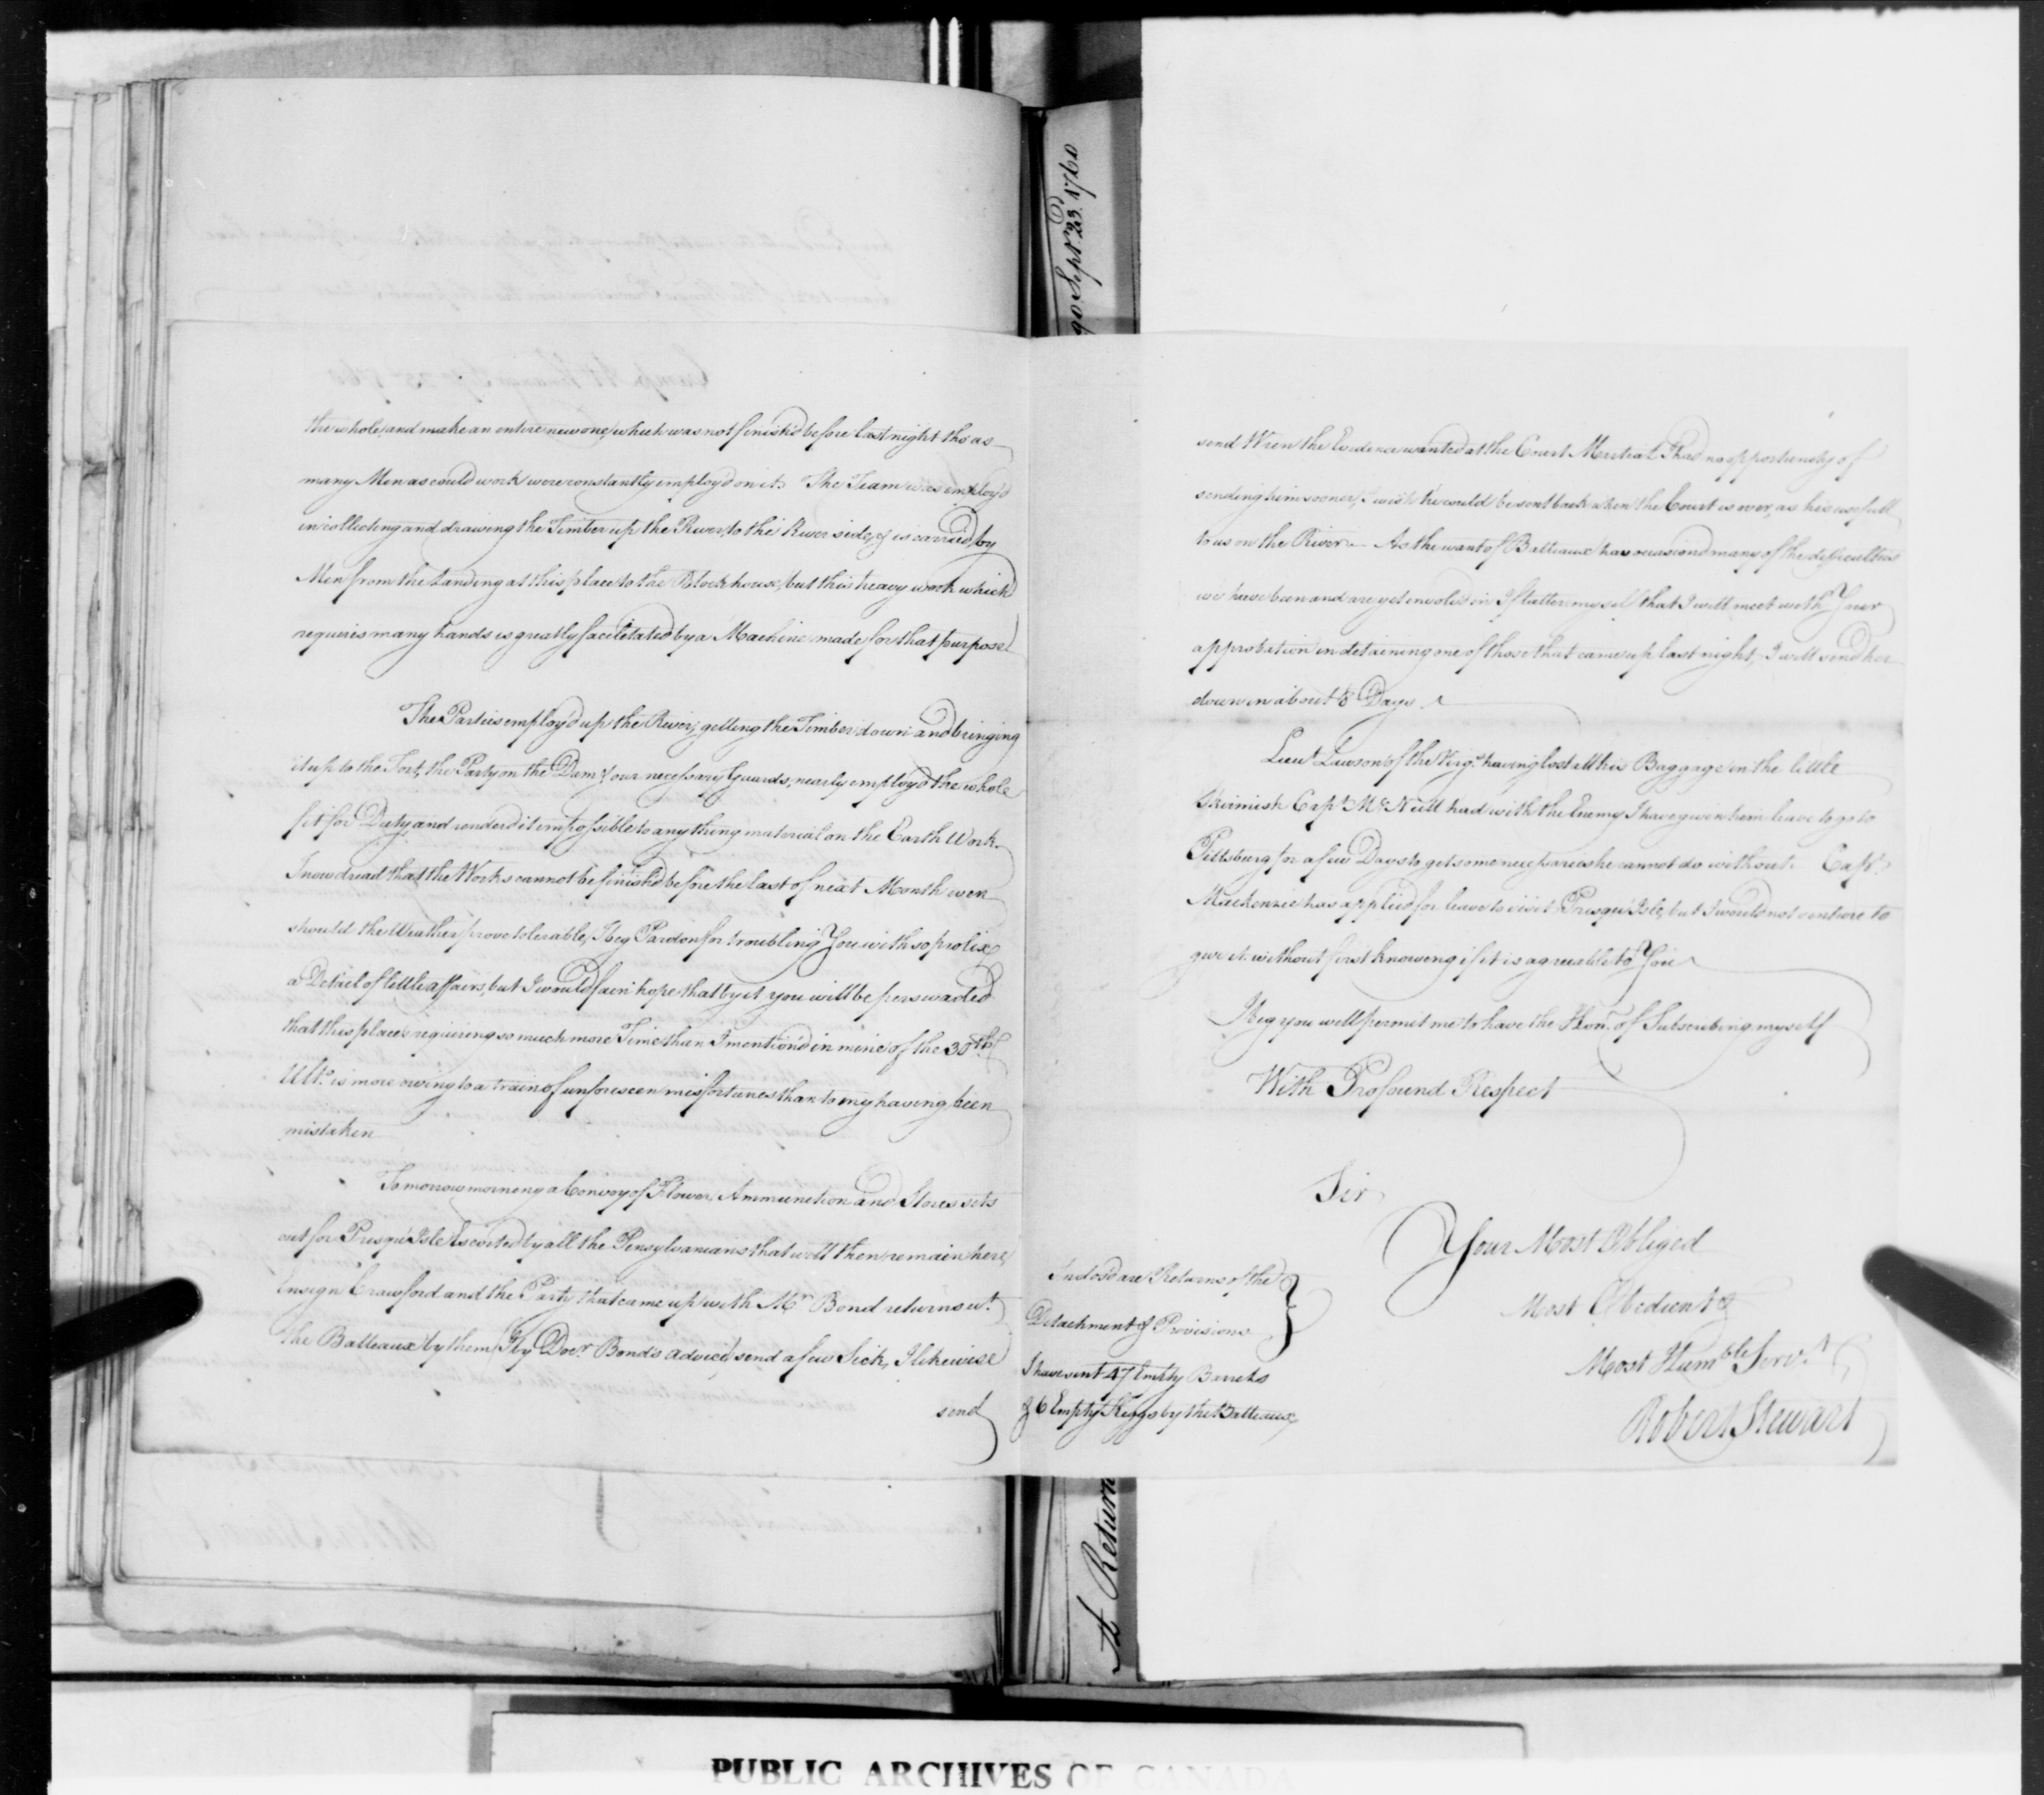 the whole, and make an entire new one, which was not finish'd before last night tho as
many Men as could work were constantly employ'd on it. The Team was employ'd
in collecting and drawing the Timber up the River, to the River side, & is carried by
Men from the Landing at this place to the Blockhouse, but this heavy work which
requires many hands is greatly facilitated by a Machine made for that purpose
The Parties employ'd up the River, getting the Timber down and bringing
it up to the Fort, the Party on the Dam & our necessary Guards, nearly employ'd the whole
fit for Duty, and render'd it impossible to any thing material on the Earth Work.
I now dread that the Works cannot be finish'd before the last of next Month even
should the Weather prove tolerable, I beg Pardon for troubling You with so prolix
a Detail of little affairs, but I would fain hope that by it you will be perswaded
that this place's requiring so much more Time than I mention'd in mine of the 30th
Ulto. is more owing to a train of unforeseen misfortunes than to my having been
mistaken
Tomorrow morning a Convoy of Flower, Ammunition and Stores sets
out for Presqu'Isle Escorted by all the Pensylvanians that will then remain here,
Ensign Crawford and the Party that came up with Mr. Bond returns wt.
the Batteaux, by them (By Docr. Bond's advice) send a few Sick, I likewise
send
send Wren the Evidence wanted at the Court Martial I had no opportunity of
sending him sooner, I wish he could be sent back when the Court is over, as he is usefull
to us on the River. As the want of Batteaux has occasiond many of the difficulties
we have been and are yet involv'd in I flatter myself that I will meet with Your
approbation in detaining one of those that came up last night, I will send her
down in about 8 Days
Lieut. Lawson of the Virga. having lost all his Baggage in the little
Skirmish Capt. McNeill had with the Enemy I have given him leave to go to
Pittsburg for a few Days to get some necessaries he cannot do without. Capt.
Mackenzie has applied for leave to visit Presqu'Isle, but I would not venture to
give it without first knowing if it is agreeable to You
I beg you will permit me to have the Honr. of Subscribing myself
With Profound Respect
Sir
Your Most Obliged
Most Obedient &
Most Humble Servt.
Robert Stewart
Inclos'd are Returns of the
Detachment & Provisions
I have sent 47 Empty Barrels
& 6 Empty Keggs by the Batteaux
go Septr. 23d. 1760
A Return
PUBLIC ARCHIVES OF CANADA